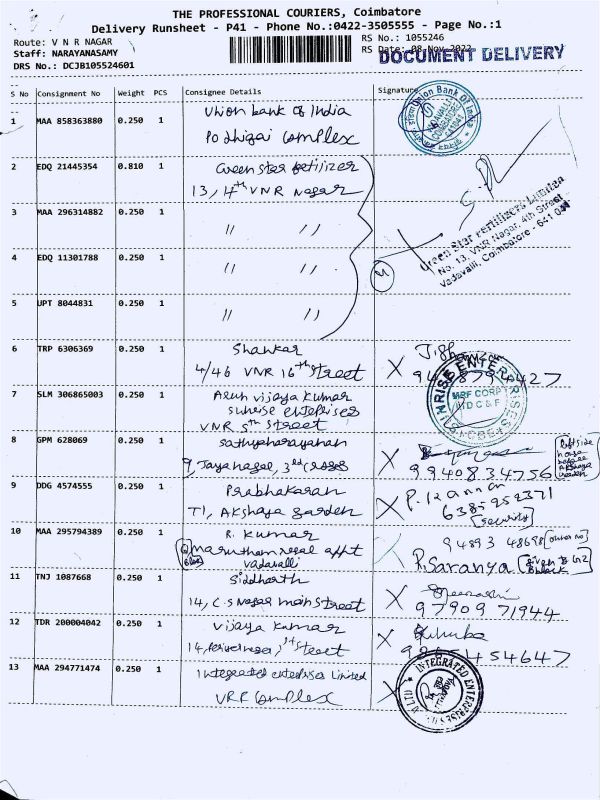 THE PROFESSIONAL COURIERS, Coimbatore
Delivery Runsheet - P41 - Phone No.:0422-3505555 - Page No.:1
Route: V N R NAGAR
RS No.: 1055246
Staff: NARAYANASAMY
RS Date: 08 Nov 2022
DRS No.: DCJB105524601
DOCUMENT DELIVERY
S No Consignment No Weight PCS Consignee Details Signature
1 MAA 858363880 0.250 1 Union bank of India
Podhigai complex
Union Bank Of India
2 EDQ 21445354 0.810 1 Green star fertilizer
13, 4th VNR Nagar
3 MAA 296314882 0.250 1 " "
Green Star Fertilizers Limited
No. 13, VNR Nagar, 4th Street
Vadavalli, Coimbatore - 641 041
4 EDQ 11301788 0.250 1 " "
5 UPT 8044831 0.250 1 " "
6 TRP 6306369 0.250 1 Shankar
4/46 VNR 16th street X
7 SLM 306865003 0.250 1 Arun vijaya kumar
sunrise enterprises
VNR 5th street
SUNRISE ENTERPRISES
MRF CORP
8 GPM 628069 0.250 1 sathyanarayanan
9, Jayanagar, 3rd cross X 9940834756
Left side
house
9 DDG 4574555 1 0.250 Prabhakaran
T1, Akshaya garden X P. Kannan
[security]
10 MAA 295794389 0.250 1 R. Kumar
94893 48698
marutham regal appt
vadavalli
R. Saranya
given G2
Block
11 TNJ 1087668 0.250 1 Siddharth
14, C.S Nagar main street X
97909 71944
12 TDR 200004042 0.250 1 Vijaya kumar
street X
13 MAA 294771474 0.250 1 Integrated enterprises Limited
VRR complex X
INTEGRATED ENTERPRISES